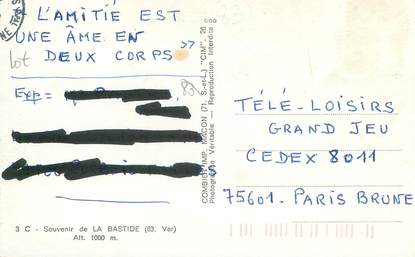 L'AMITIÉ EST
UNE ÂME EN
DEUX CORPS »
Lot
83
Exp=
TÉLÉ-LOISIRS
GRAND JEU
CEDEX 8011
75601- PARIS BRUNE
COMBIER IMP. MACON (71. S.-et-L.) "CIM", 26
Photographie Véritable — Reproduction Interdite
3 C - Souvenir de LA BASTIDE (83. Var)
Alt. 1000 m.